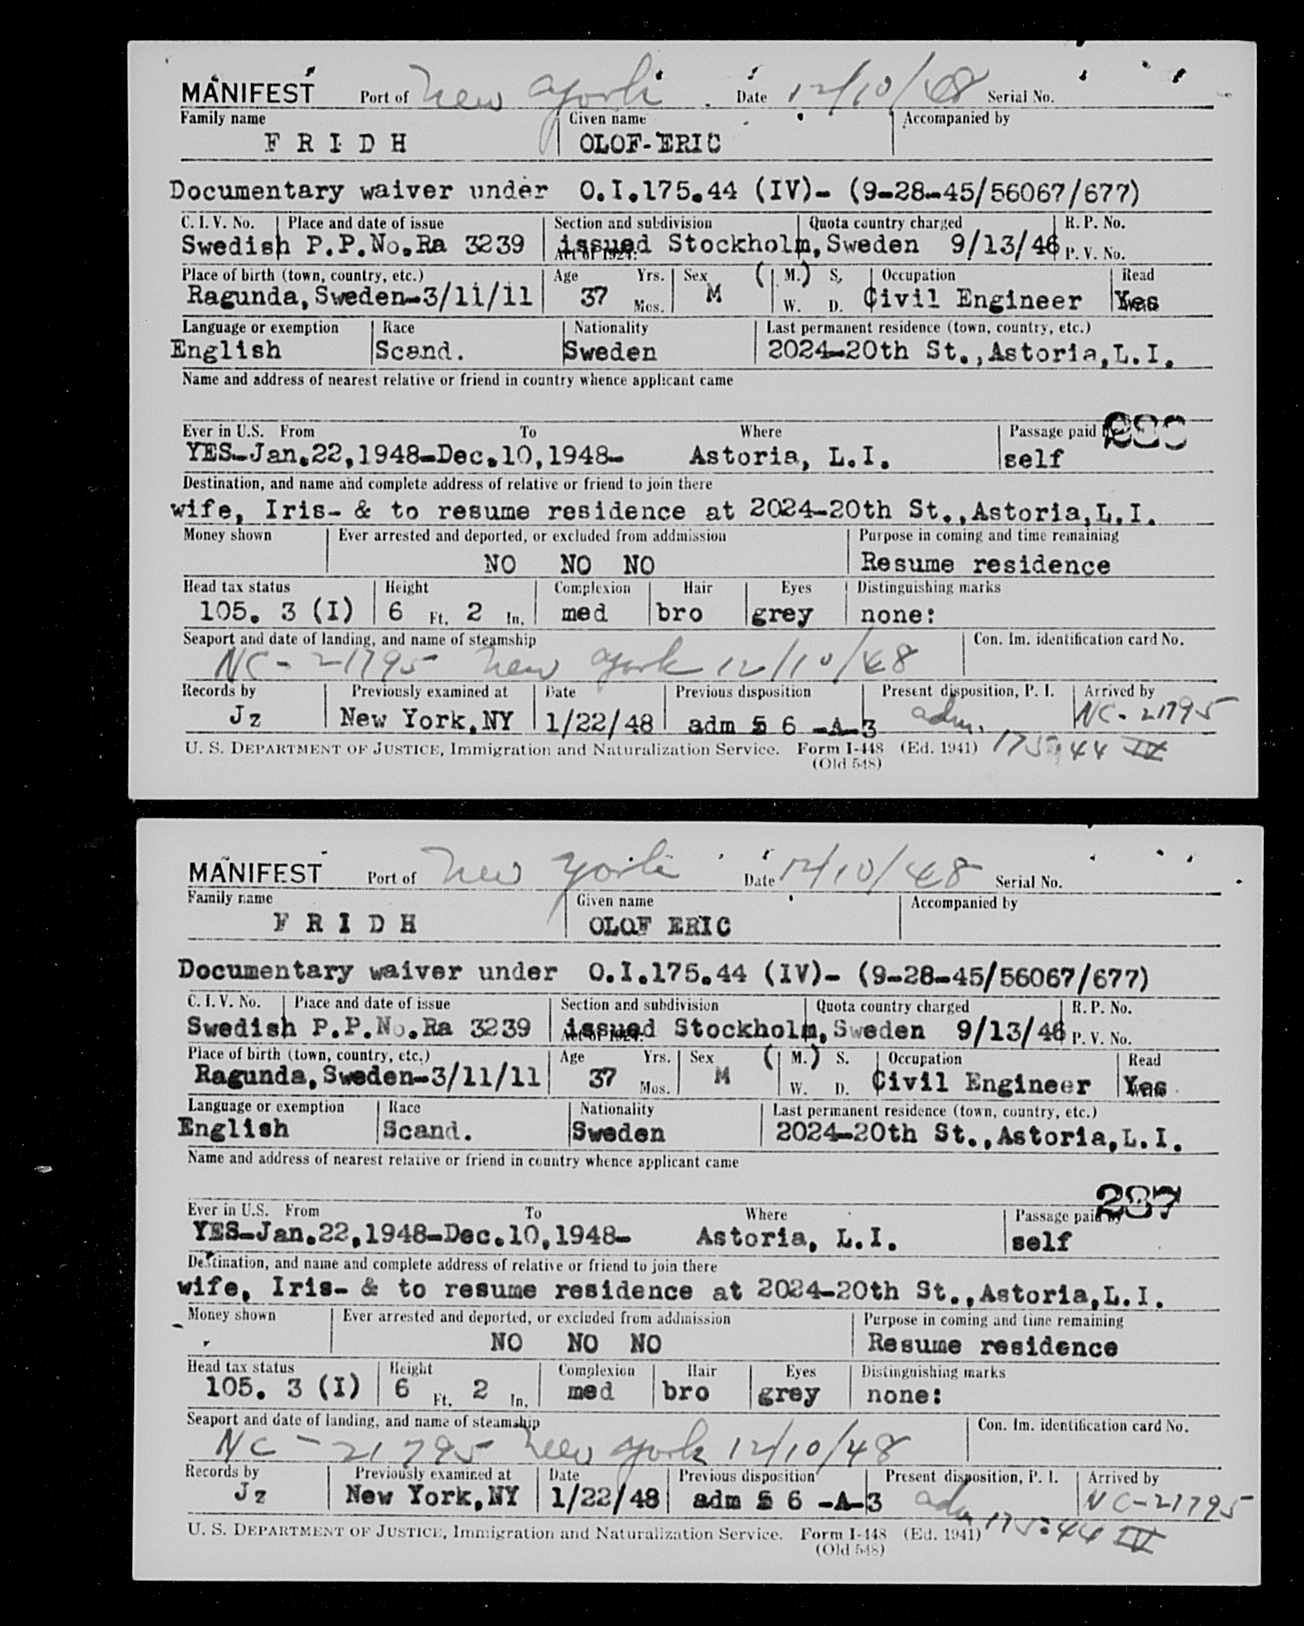 MANIFEST Port of New York Date 12/10/48 Serial No.
Family name Given name Accompanied by
F R I D H OLOF-ERIC
Documentary waiver under O.I.175.44 (IV)- (9-28-45/56067/677)
C. I. V. No. Place and date of issue Section and subdivision Quota country charged R. P. No.
Swedish P.P.No.Ra 3239 issued Stockholm, Sweden 9/13/46 P. V. No.
Act of 1924.
Place of birth (town, country, etc.) Age Yrs. Sex (M.) S. Occupation Read
Ragunda, Sweden-3/11/11 37 Mos. M W. D. Civil Engineer Yes
Language or exemption Race Nationality Last permanent residence (town, country, etc.)
English Scand. Sweden 2024-20th St.,Astoria,L.I.
Name and address of nearest relative or friend in country whence applicant came
Ever in U.S. From To Where Passage paid by
YES-Jan.22,1948-Dec.10,1948- Astoria, L.I. self
Destination, and name and complete address of relative or friend to join there
wife, Iris- & to resume residence at 2024-20th St.,Astoria,L.I.
Money shown Ever arrested and deported, or excluded from addmission Purpose in coming and time remaining
NO NO NO Resume residence
Head tax status Height Complexion Hair Eyes Distinguishing marks
105. 3 (I) 6 Ft. 2 In. med bro grey none:
Seaport and date of landing, and name of steamship Con. Im. identification card No.
NC-21795 New York 12/10/48
Records by Previously examined at Date Previous disposition Present disposition, P. I. Arrived by
Jz New York,NY 1/22/48 adm § 6 -A-3 adm. NC-21795
U. S. DEPARTMENT OF JUSTICE, Immigration and Naturalization Service. Form I-448 (Ed. 1941) 175.44 IV
(Old 548)
MANIFEST Port of New York Date 12/10/48 Serial No.
Family name Given name Accompanied by
F R I D H OLOF ERIC
Documentary waiver under O.I.175.44 (IV)- (9-28-45/56067/677)
C. I. V. No. Place and date of issue Section and subdivision Quota country charged R. P. No.
Swedish P.P.No.Ra 3239 issued Stockholm, Sweden 9/13/46 P. V. No.
Act of 1924.
Place of birth (town, country, etc.) Age Yrs. Sex (M.) S. Occupation Read
Ragunda, Sweden-3/11/11 37 Mos. M W. D. Civil Engineer Yes
Language or exemption Race Nationality Last permanent residence (town, country, etc.)
English Scand. Sweden 2024-20th St.,Astoria,L.I.
Name and address of nearest relative or friend in country whence applicant came
237
Ever in U.S. From To Where Passage paid by
YES-Jan.22,1948-Dec.10,1948- Astoria, L.I. self
Destination, and name and complete address of relative or friend to join there
wife, Iris- & to resume residence at 2024-20th St.,Astoria,L.I.
Money shown Ever arrested and deported, or excluded from addmission Purpose in coming and time remaining
NO NO NO Resume residence
Head tax status Height Complexion Hair Eyes Distinguishing marks
105. 3 (I) 6 Ft. 2 In. med bro grey none:
Seaport and date of landing, and name of steamship Con. Im. identification card No.
NC-21795 New York 12/10/48
Records by Previously examined at Date Previous disposition Present disposition, P. I. Arrived by
Jz New York,NY 1/22/48 adm § 6 -A-3 adm NC-21795
U. S. DEPARTMENT OF JUSTICE, Immigration and Naturalization Service. Form I-448 (Ed. 1941) 175.44 IV
(Old 548)